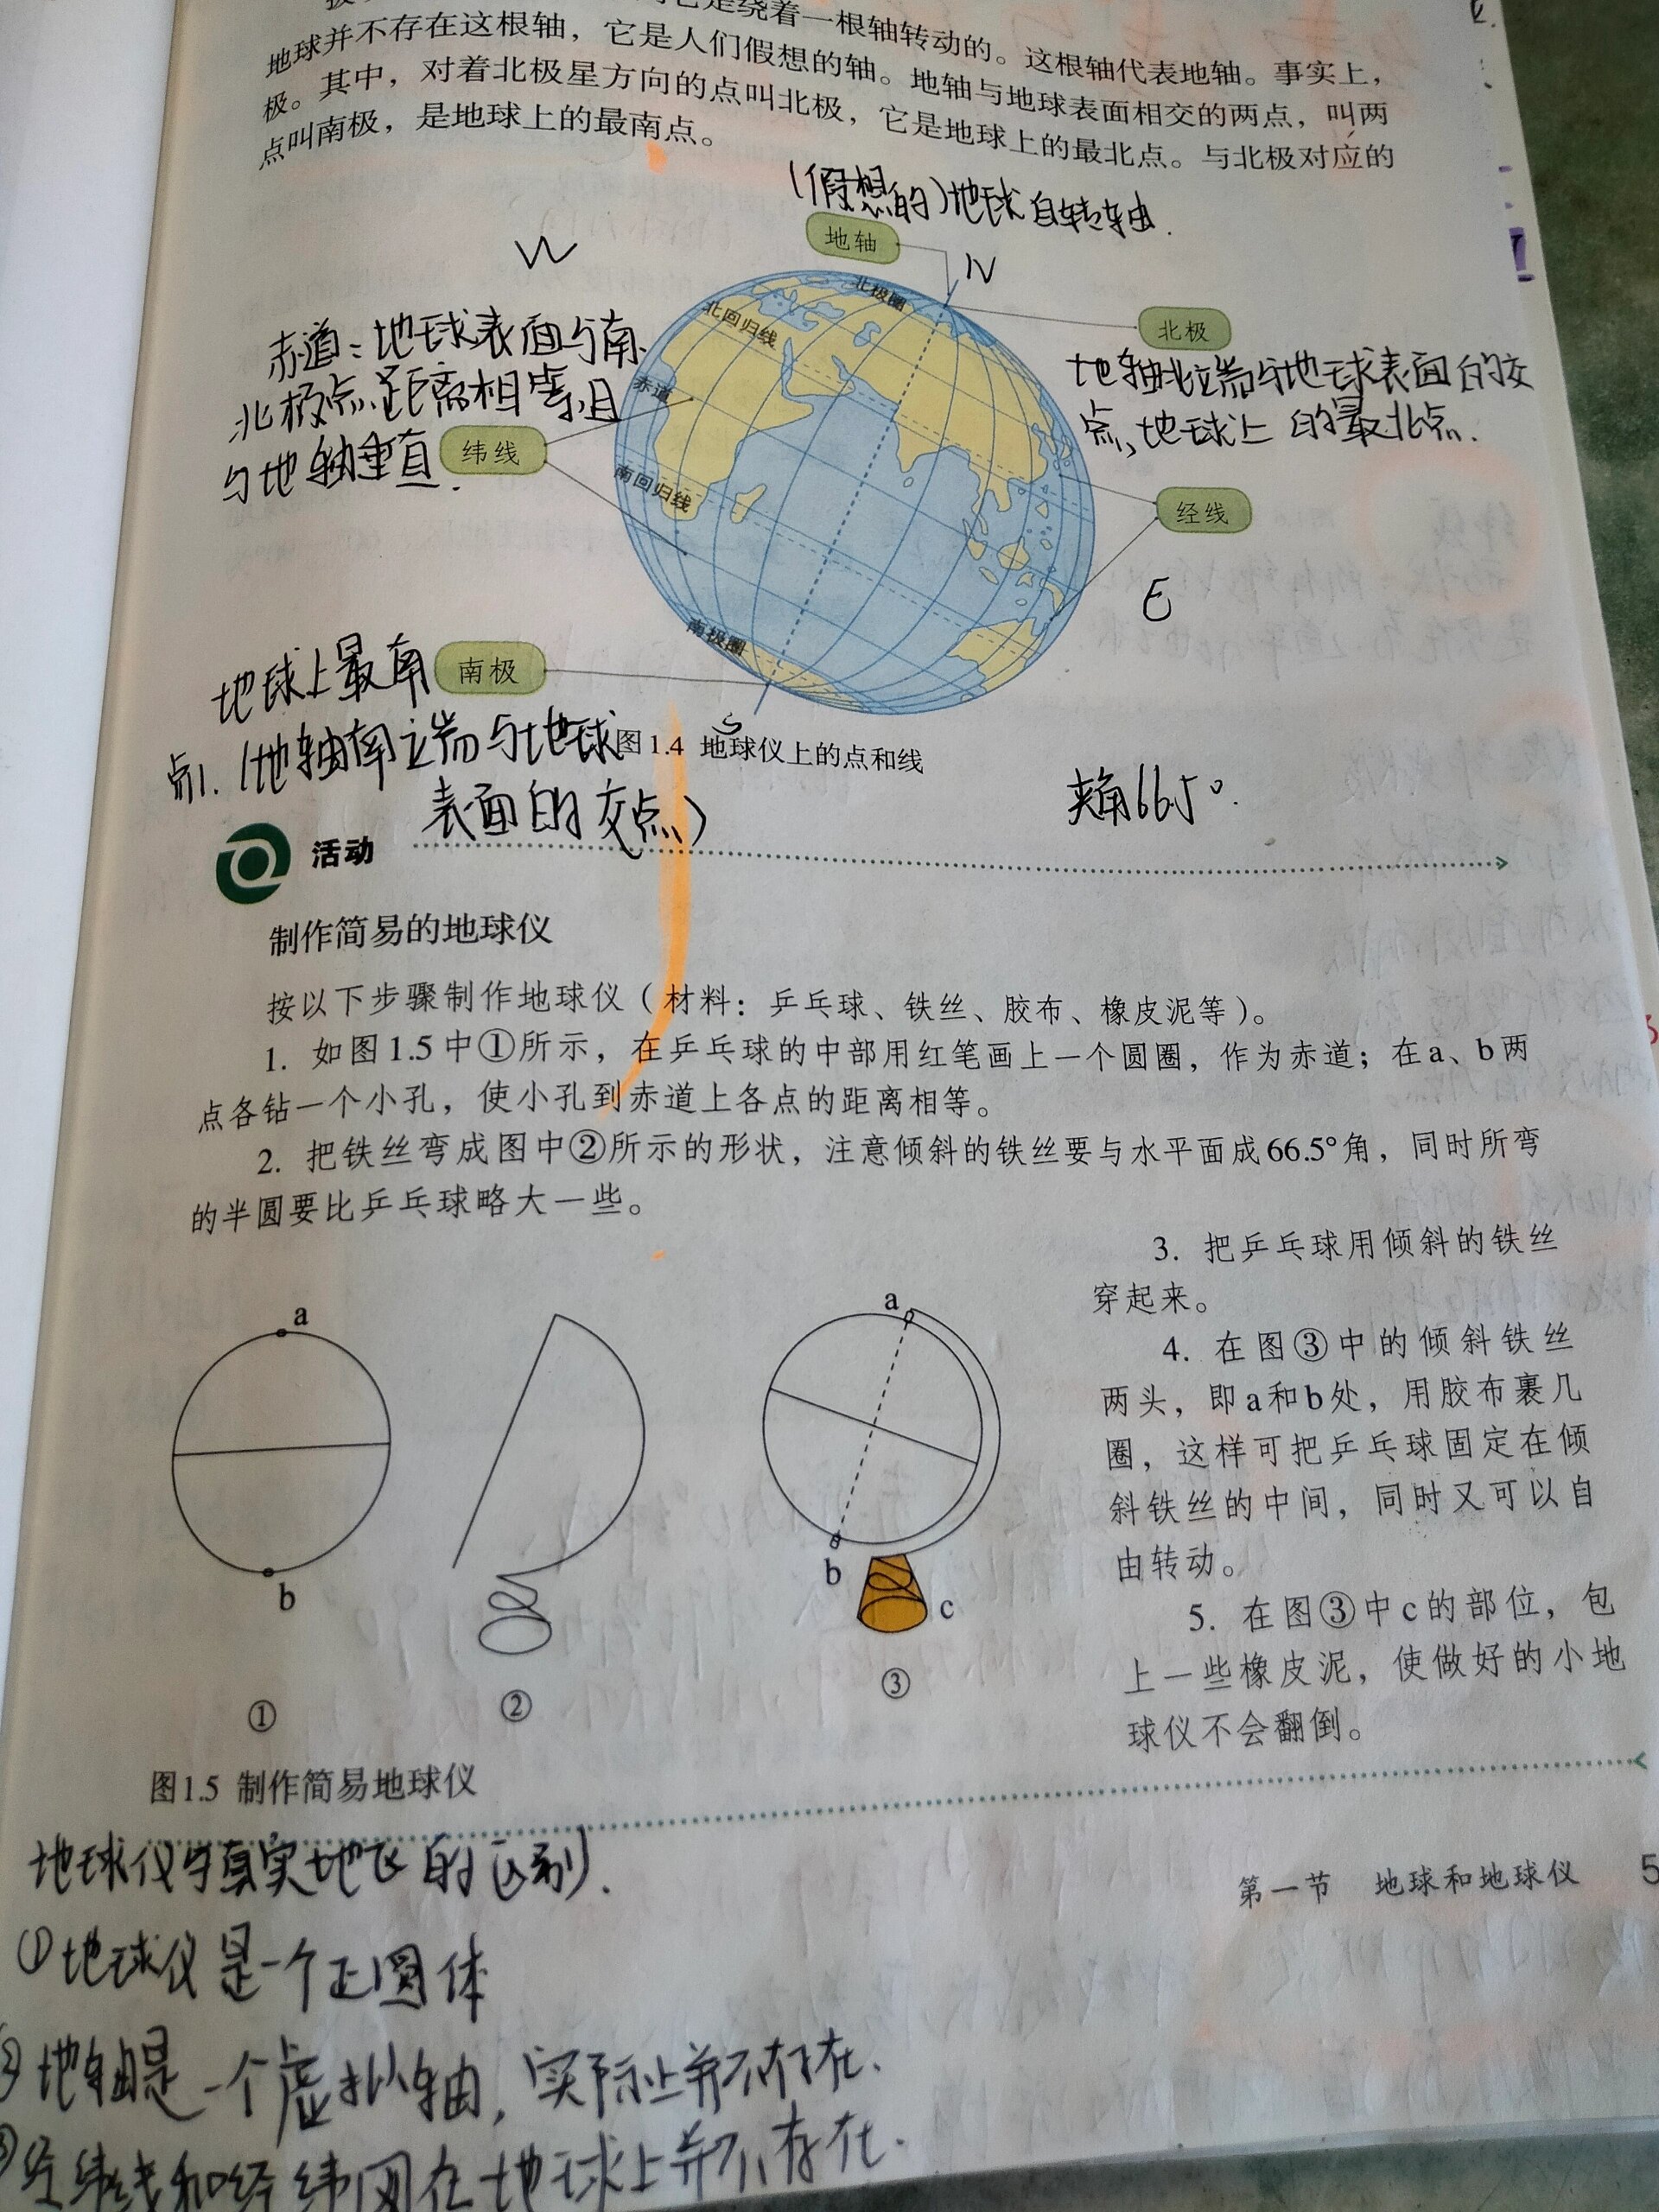 它是绕着一根轴转动的。这根轴代表地轴。事实上，
地球并不存在这根轴，它是人们假想的轴。地轴与地球表面相交的两点，叫两
极。其中，对着北极星方向的点叫北极，它是地球上的最北点。与北极对应的
点叫南极，是地球上的最南点。
(假想的)地球自转轴.
地轴
W
N
北极圈
北回归线
北极
赤道：地球表面与南、
北极点距离相等且
与地轴垂直.
赤道
纬线
地轴北端与地球表面的交
点,地球上的最北点.
南回归线
经线
E
南极圈
地球上最南
南极
点.(地轴南端与地球
表面的交点)
S
图1.4 地球仪上的点和线
夹角66.5°.
活动
制作简易的地球仪
按以下步骤制作地球仪（材料：乒乓球、铁丝、胶布、橡皮泥等）。
1. 如图1.5中①所示，在乒乓球的中部用红笔画上一个圆圈，作为赤道；在a、b两
点各钻一个小孔，使小孔到赤道上各点的距离相等。
2. 把铁丝弯成图中②所示的形状，注意倾斜的铁丝要与水平面成66.5°角，同时所弯
的半圆要比乒乓球略大一些。
3. 把乒乓球用倾斜的铁丝
穿起来。
4. 在图③中的倾斜铁丝
两头，即a和b处，用胶布裹几
圈，这样可把乒乓球固定在倾
斜铁丝的中间，同时又可以自
由转动。
5. 在图③中c的部位，包
上一些橡皮泥，使做好的小地
球仪不会翻倒。
a
b
①
②
a
b
c
③
图1.5 制作简易地球仪
地球仪与真实地球的区别.
①地球仪是一个正圆体
②地轴是一个虚拟轴,实际上并不存在.
③经纬线和经纬网在地球上并不存在.
第一节 地球和地球仪 5